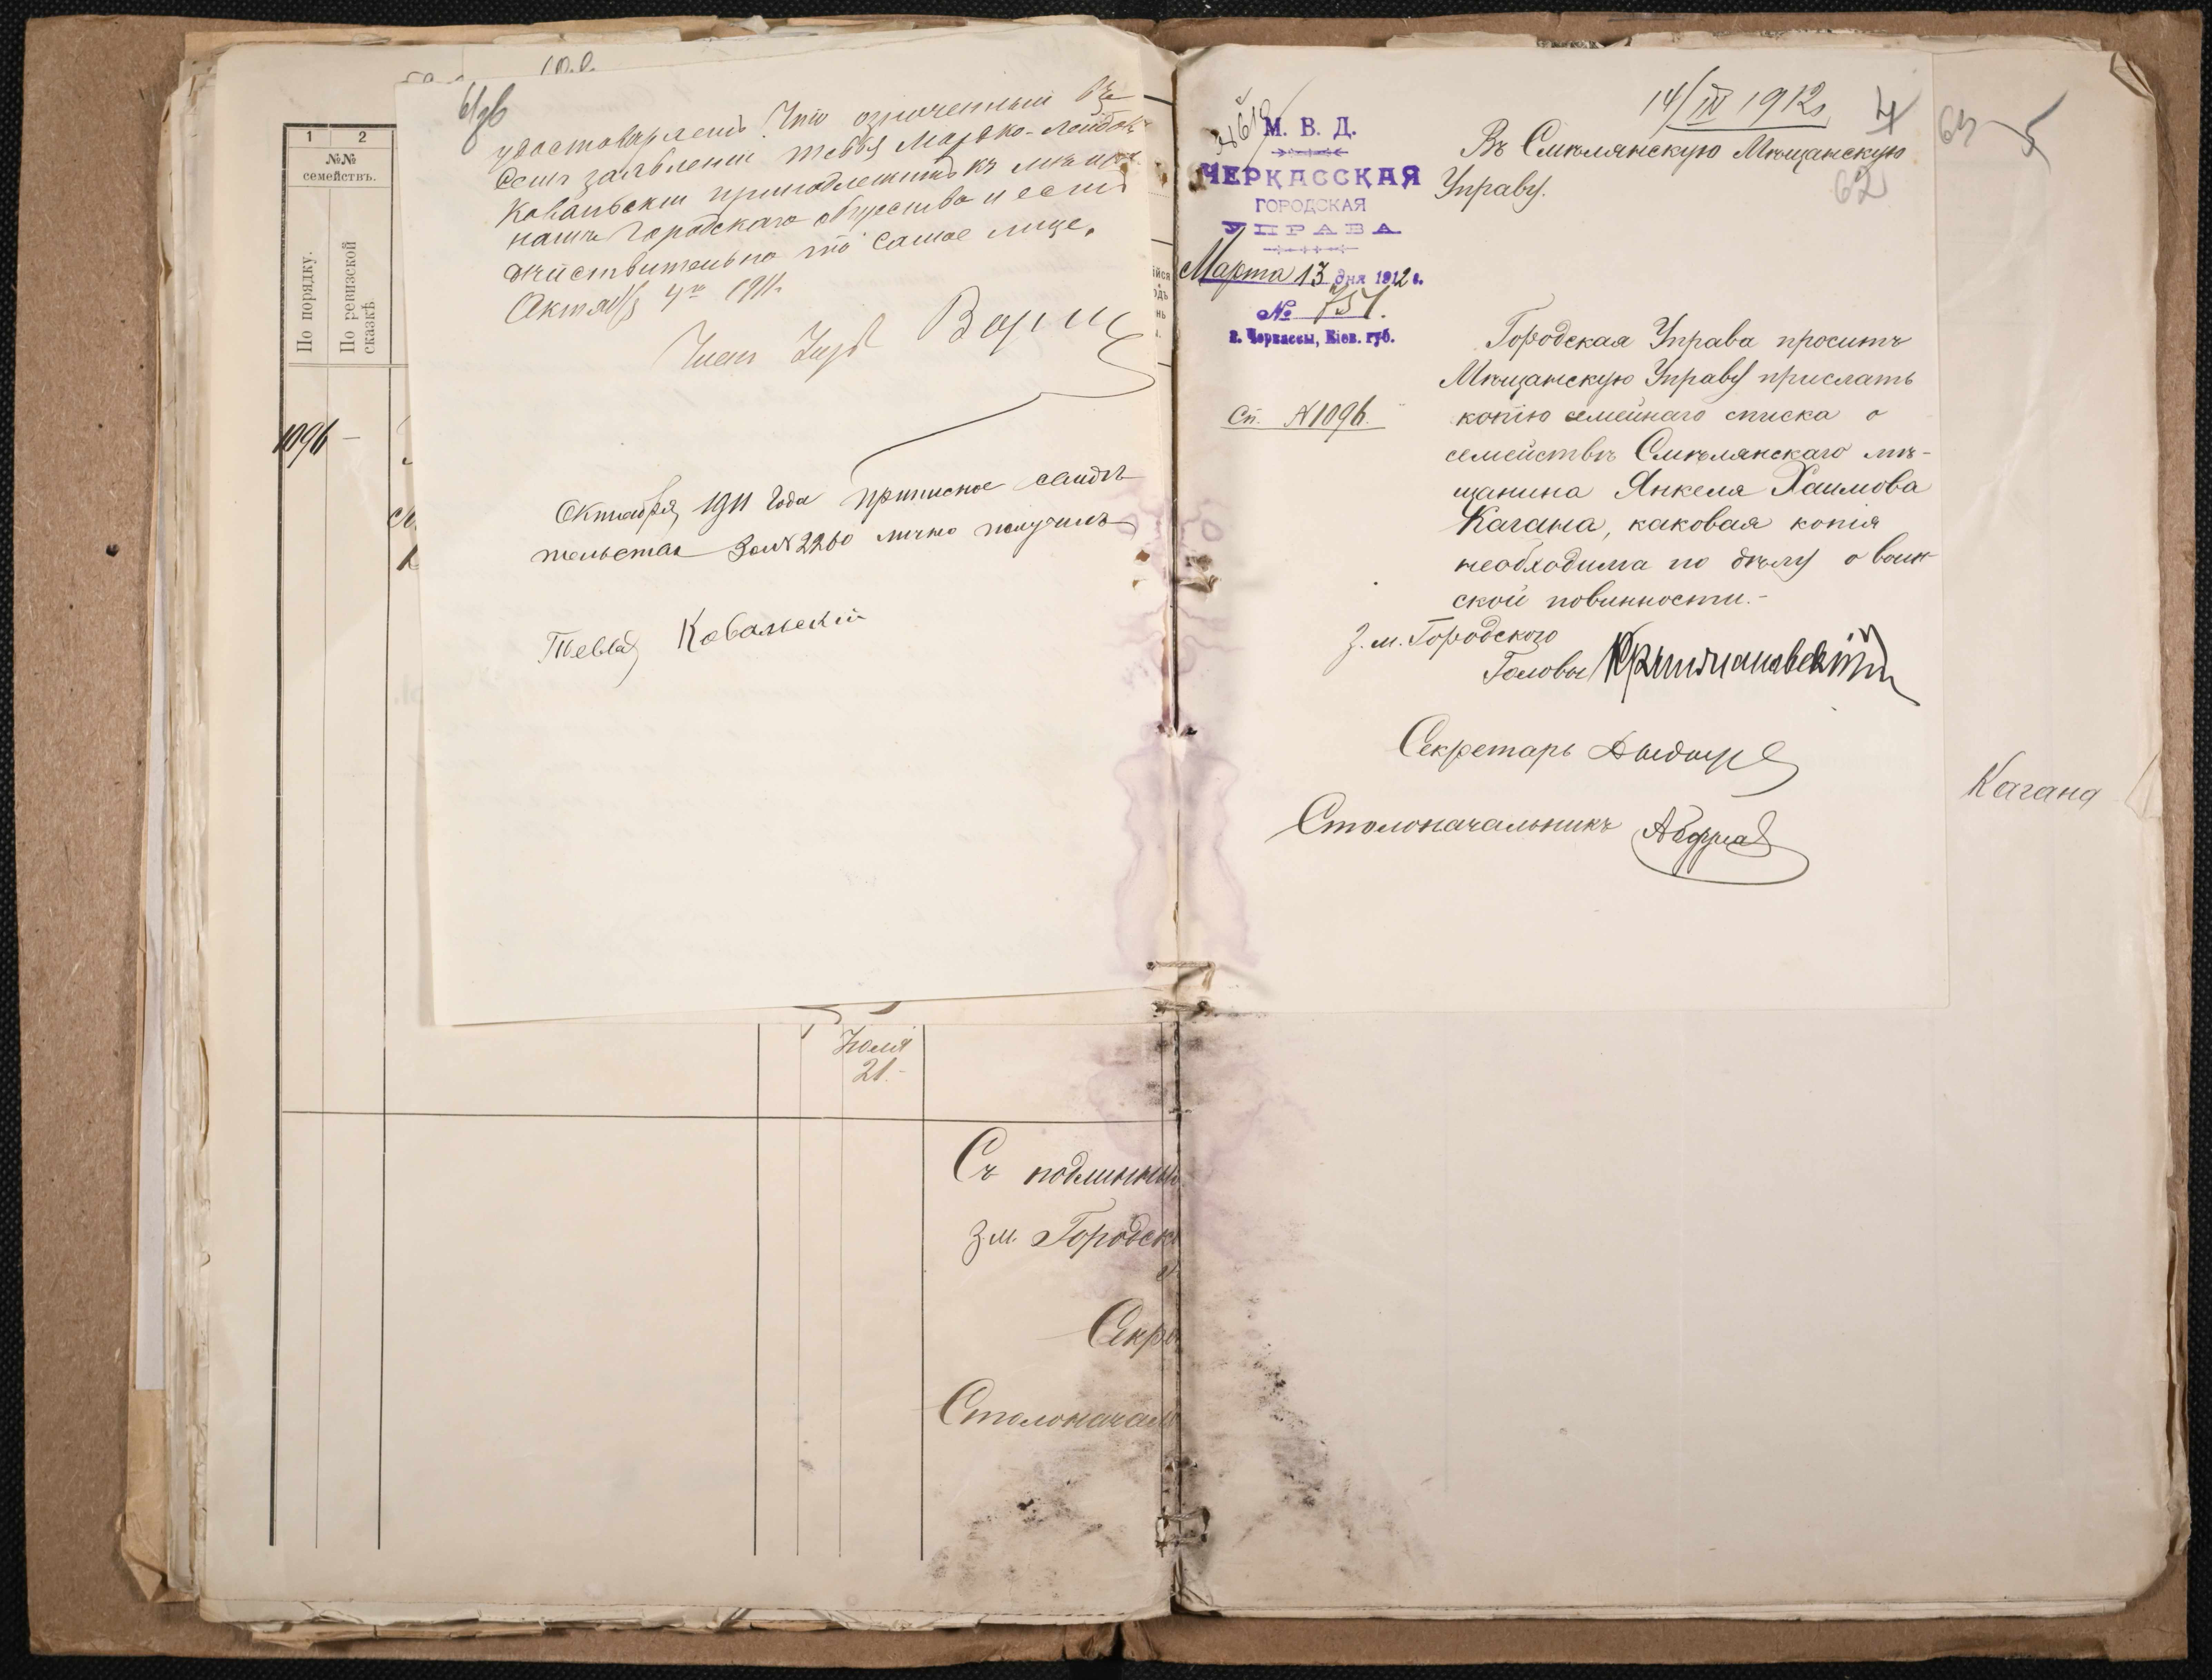 61об
удостоверяетъ что означенный въ
семъ заявленіи Тевья Мордко-Лейбовъ
Ковальскій принадлежитъ къ мѣщан
городскаго общества и есть
дѣйствительно то самое лице.
Октября 4го 1911
Октября 1911 года приписное свидѣ
тельство за № 2260 лично получилъ
Тевья Ковальскій
1 2
№№
семействъ.
По порядку.
По ревизской
сказкѣ
1096 —
Іюля
21.-
Съ подлинны
З.м. Городск
Секре
Столоначаль
14/III 1912 г.
М. В. Д.
ЧЕРКАССКАЯ
ГОРОДСКАЯ
УПРАВА
Марта 13 дня 1912 г.
№ 751.
г. Черкассы, Кіев. губ.
Сп. № 1096.
Въ Смѣлянскую Мѣщанскую
Управу.
62
Городская Управа проситъ
Мѣщанскую Управу прислать
копію семейнаго списка о
семействѣ Смѣлянскаго мѣ-
щанина Янкеля Хаимова
Кагана, каковая копія
необходима по дѣлу о воин-
ской повинности.-
З.м. Городского
Головы
Секретарь
Столоначальникъ
Кагана